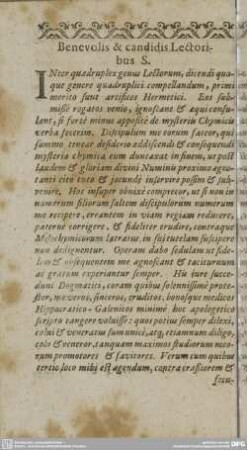 Benevolis & candidis Lectori-
bus S.
INter quadruplex genus Lectorum, dicendi quo-
que genere quadruplici compellandum, primi
merito sunt artifices Hermetici. Eos sub-
misse rogatos venio, ignoscant & æqui consu-
lant, si forte minus apposite de mysteriis Chymicis
verba fecerim. Discipulum me eorum fateor, qui
summo tenear desiderio addiscendi & consequendi
mysteria chymica eum duntaxat in finem, ut post
laudem & gloriam divini Numinis proximo ægro-
tanti cito tuto & jucunde inservire possim & sub-
venire. Hos insuper obnixe comprecor, ut si non in
numerum filiorum saltem discipulorum numerum
me recipere, errantem in viam regiam reducere,
paterne corrigere, & fideliter erudire, contraque
Misochymicorum latratus in sui tutelam suscipere
non dedignentur. Operam dabo sedulam ut fide-
lem & obsequentem me agnoscant & taciturnum
ac gratum experiantur semper. His jure succe-
dunt Dogmatici, coram quibus solennissime prote-
stor, me veros, sinceros, eruditos, bonosque medicos
Hippocratico-Galenicos minime hoc apologetico
scripto tangere voluisse: quos potius semper dilexi,
colui & veneratus sum unice, atq; etiamnum diligo,
colo & veneror, tanquam maximos studiorum meo-
rum promotores & fautores. Verum cum quibus
tertio loco mihi est agendum, contra crassiorem &